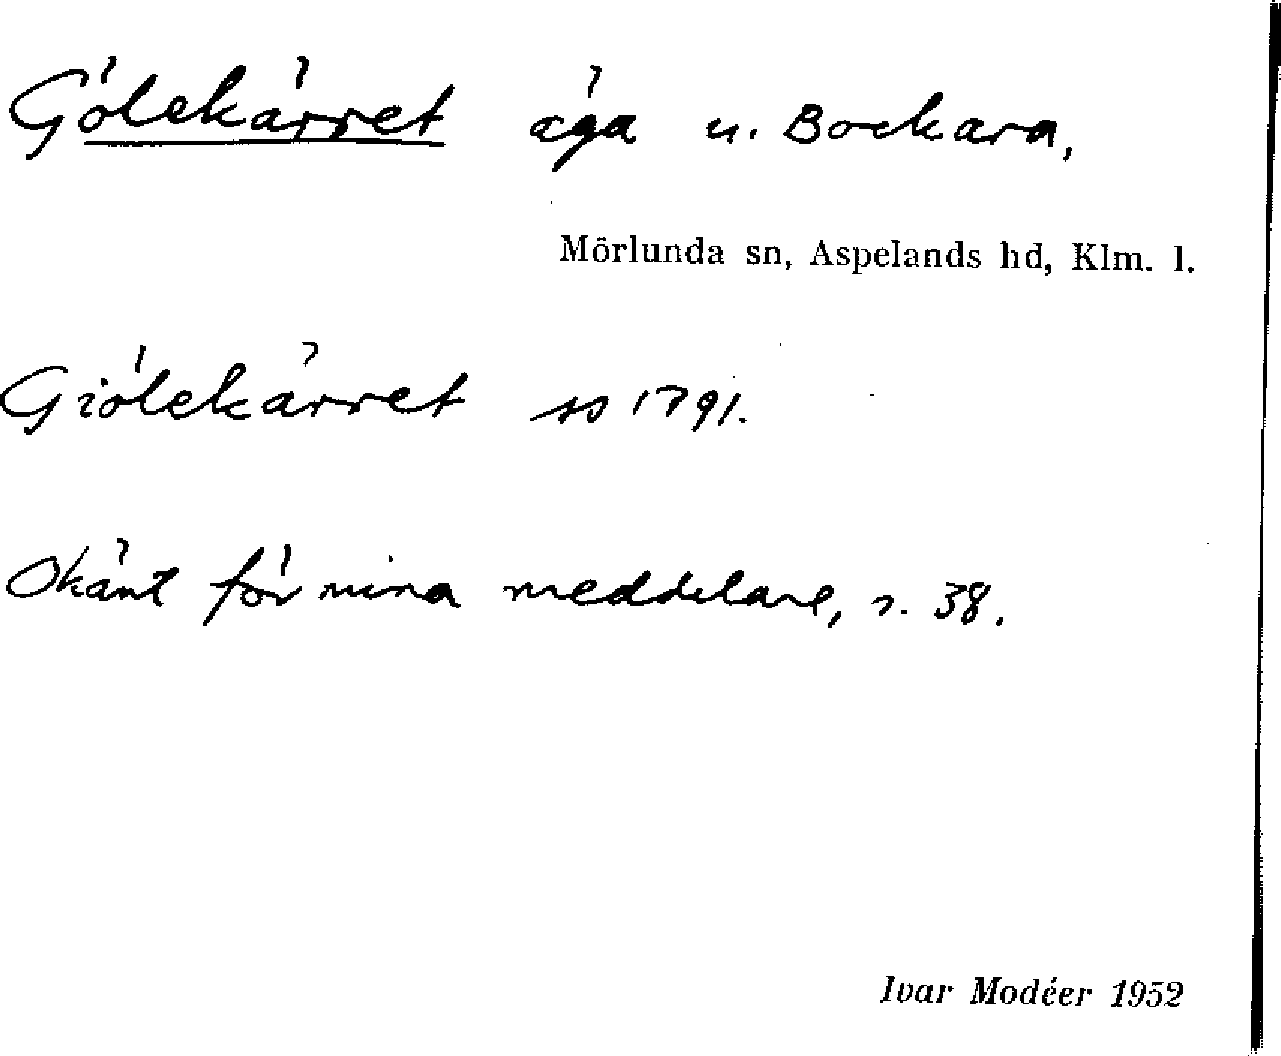 Gölekärret äga u. Bockara,
Mörlunda sn, Aspelands hd, Klm. l.
Giölekärret ss 1791.
Okänt för mina meddelare, s. 38.
Ivar Modéer 1952